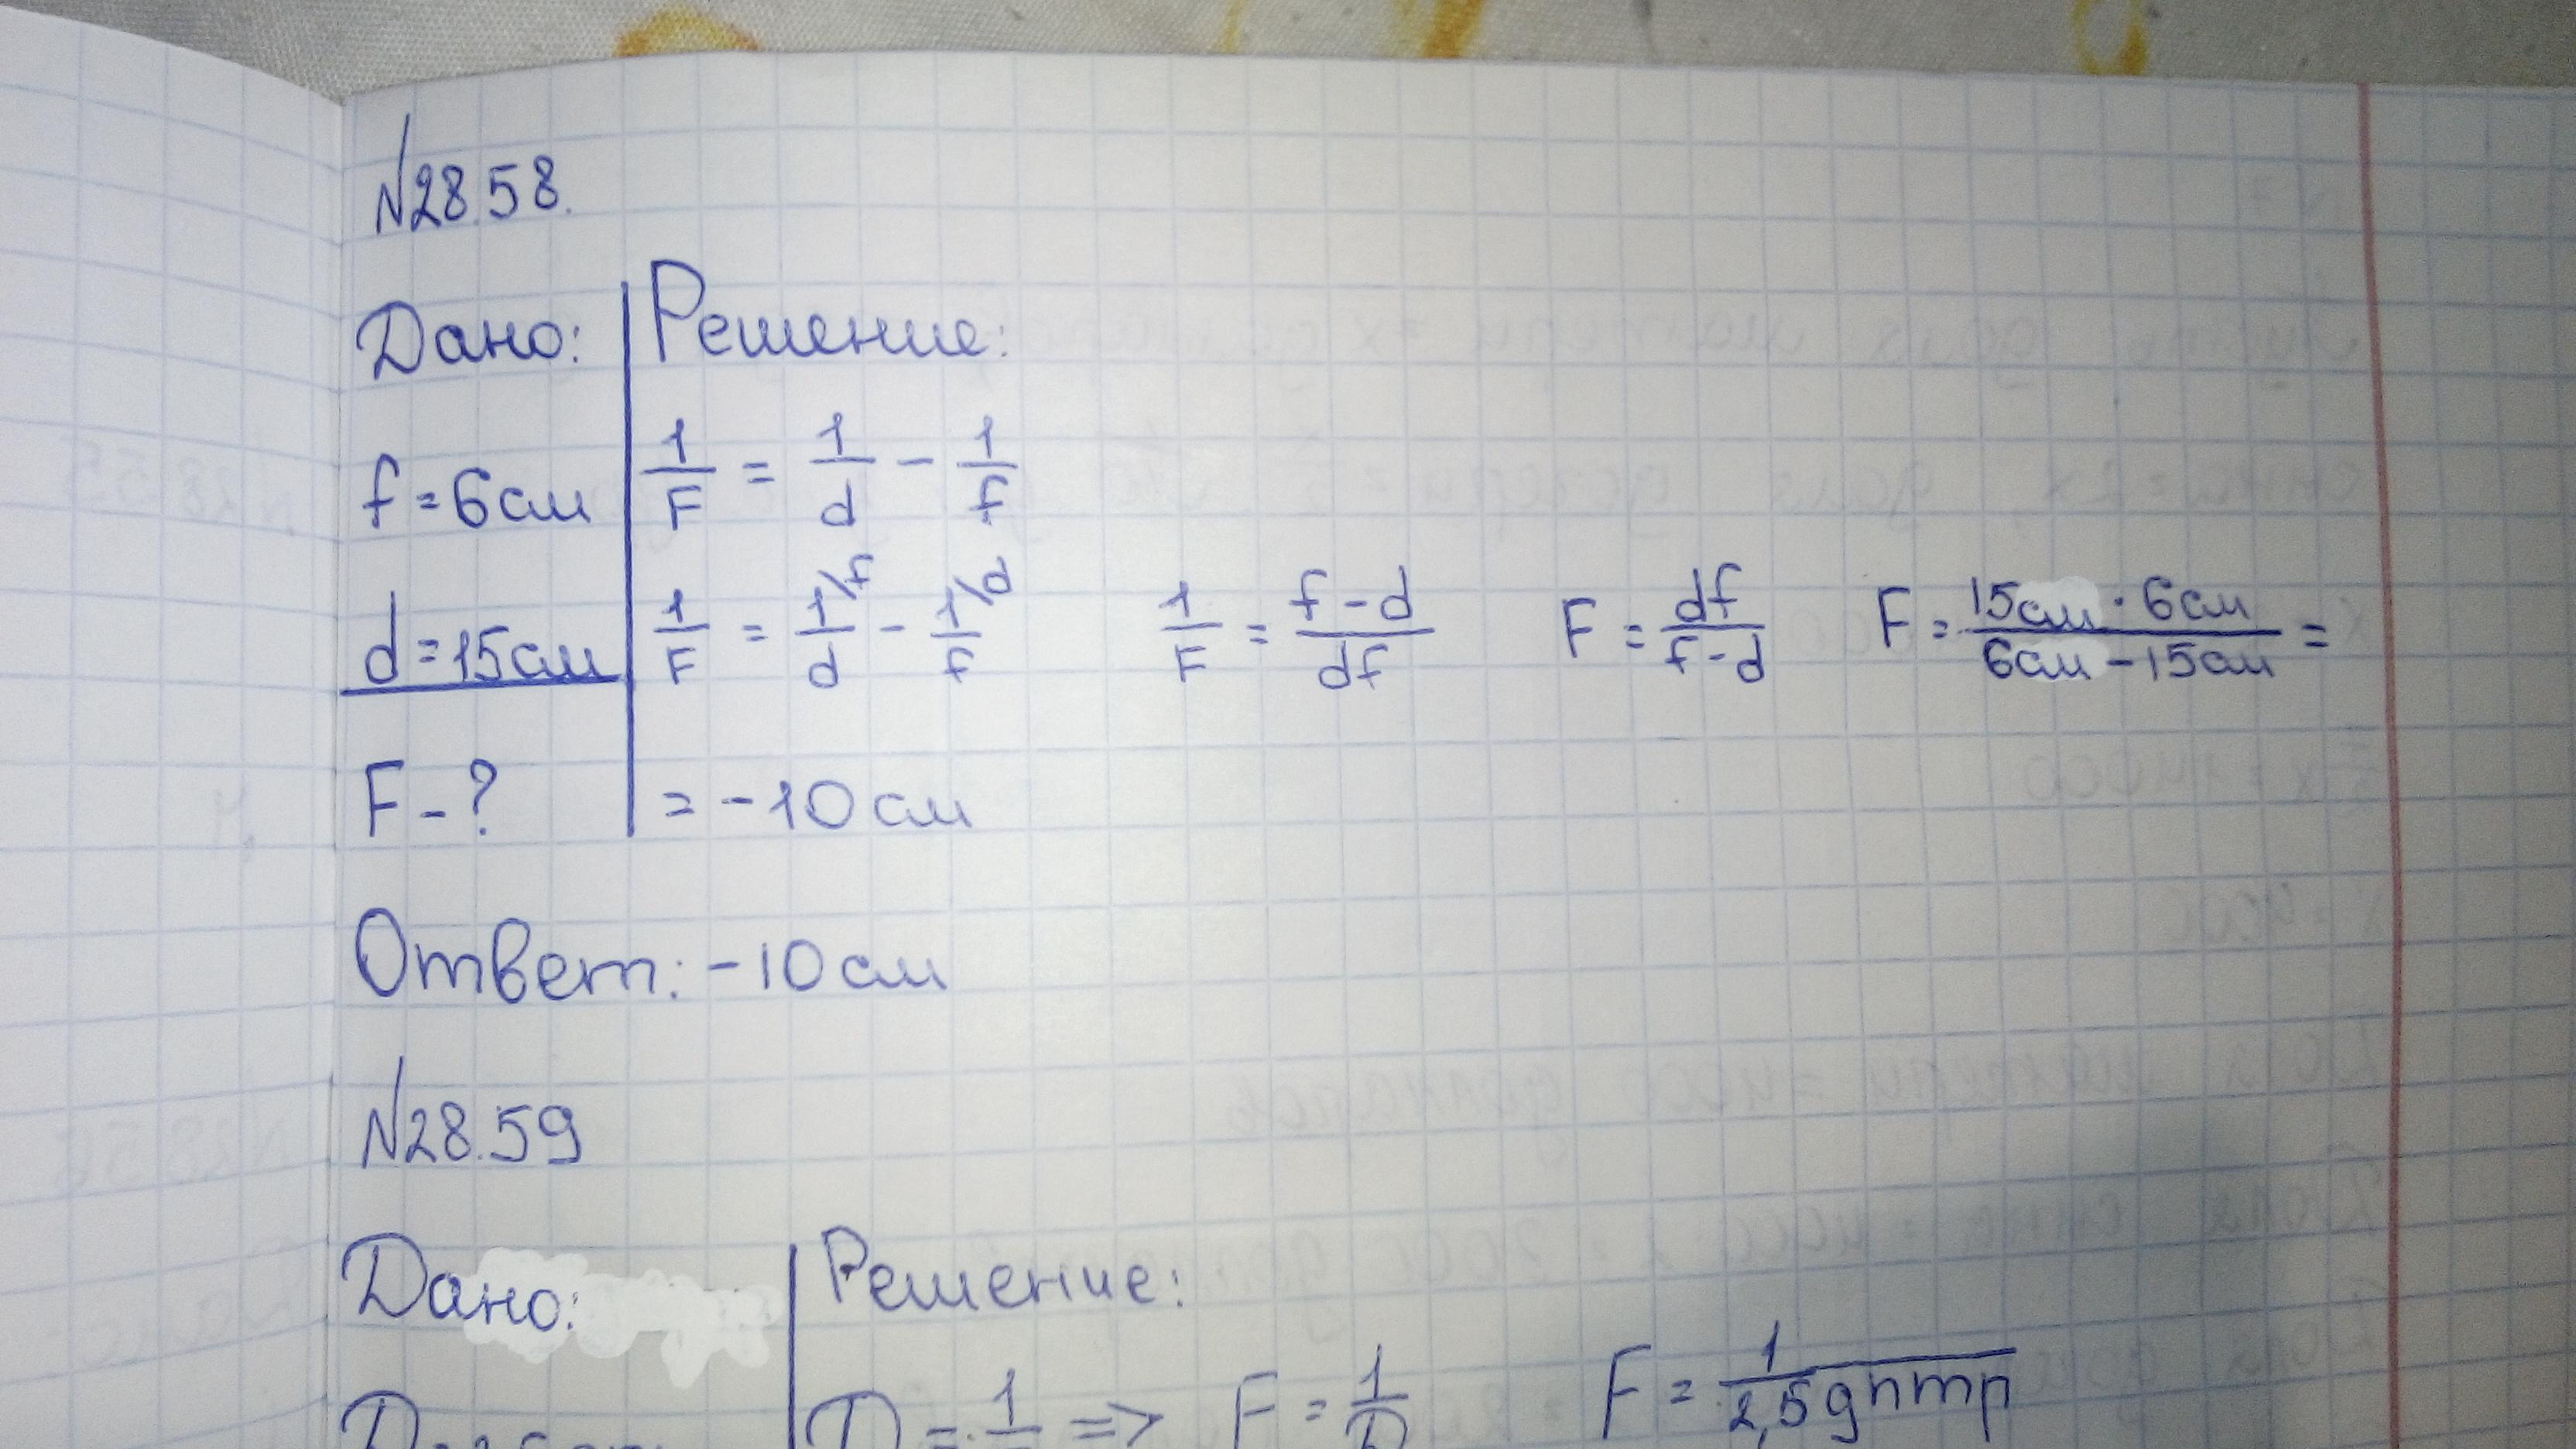 №28.58.
Дано: Решение:
f = 6см 1/F = 1/d - 1/f
d = 15см 1/F = 1\f/d - 1\d/f 1/F = f-d/df F = df/f-d F = 15см · 6см/6см - 15см =
F - ? = -10 см
Ответ: -10 см
№28.59
Дано: Решение:
D = 1 => F = 1/D F = 1/2,5 дптр